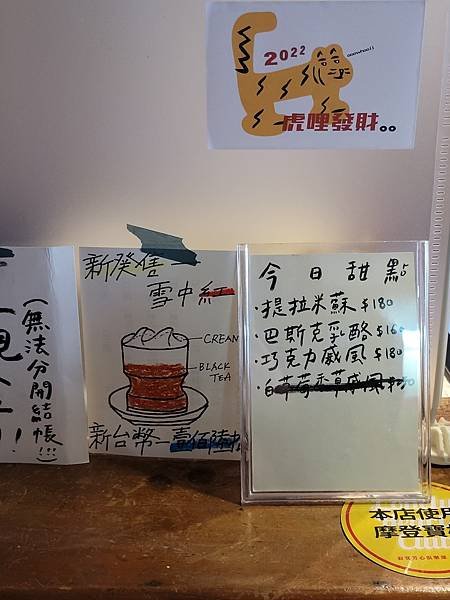 2022
ooowhooll
虎哩發財。。
新發售
雪中紅
CREAM
BLACK
TEA
新台幣 壹佰陸
(無法分開結帳!!!)
今日甜點
·提拉米蘇 $180
·巴斯克乳酪 $160
·巧克力戚風 $180
·白草莓香草戚風
本店使用
摩登寶